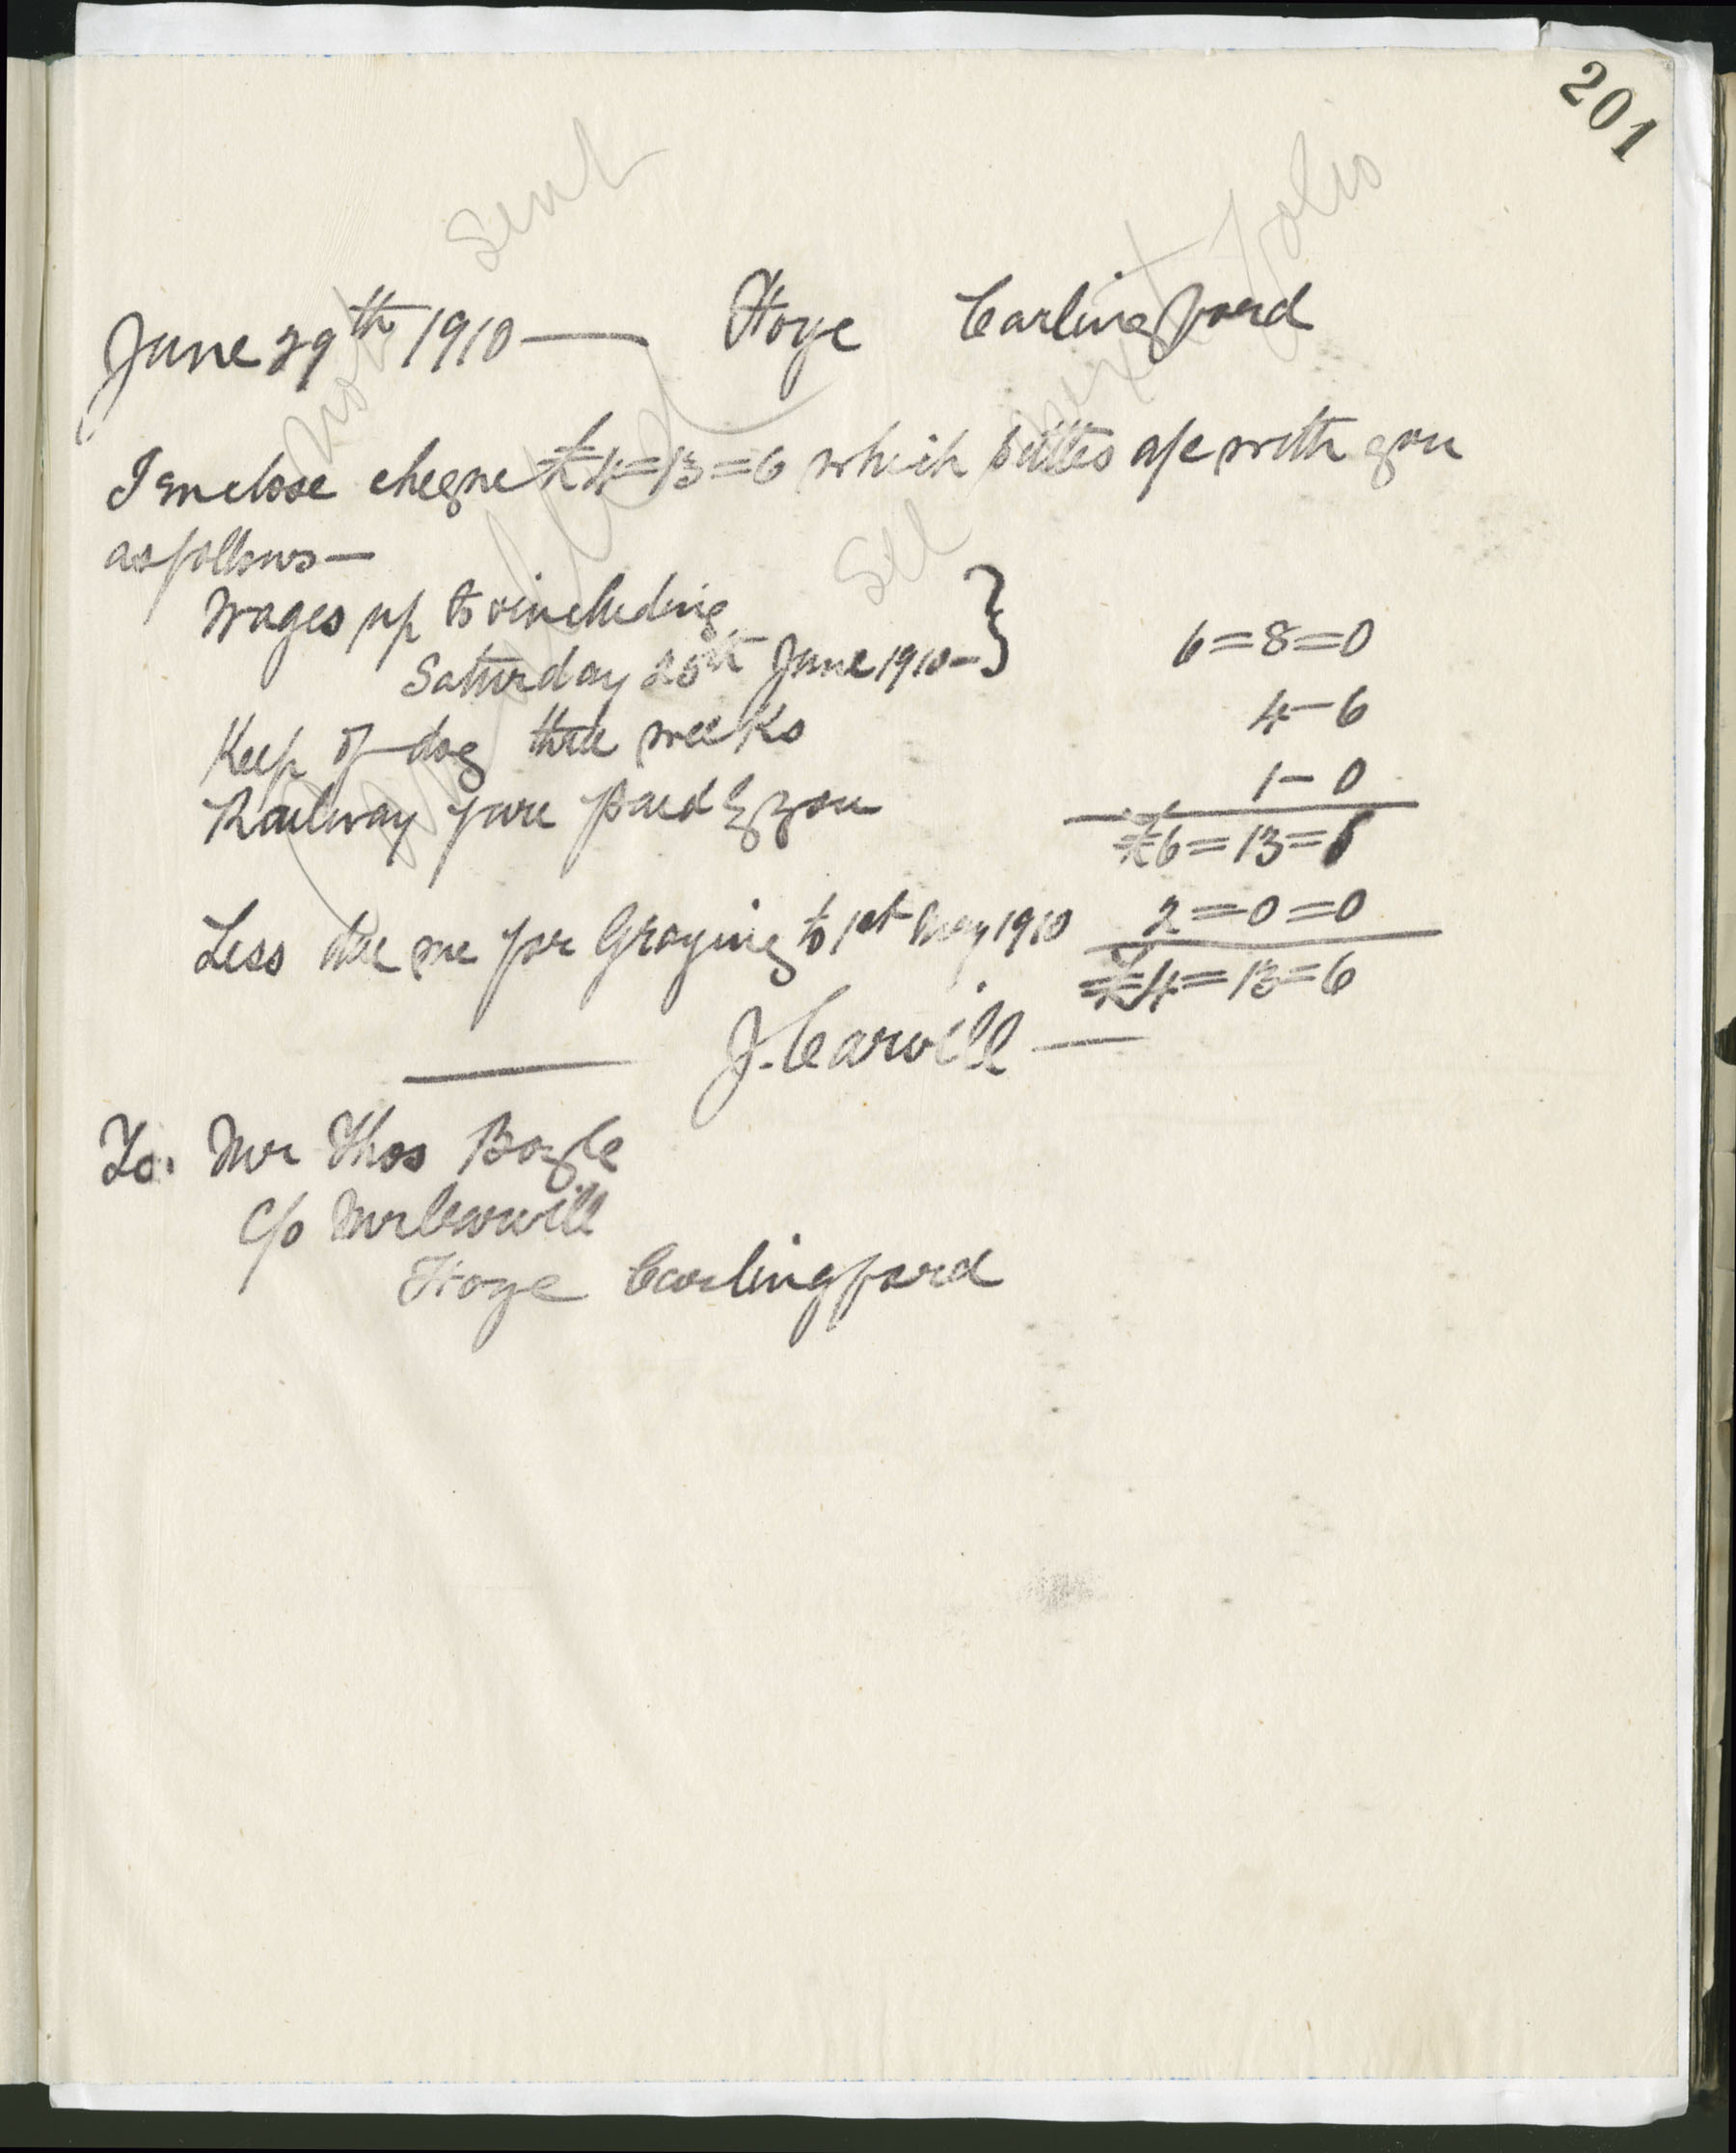 201
not sent
Cancelled
See next folio
June 29th 1910 — Hoye Carlingford
I enclose cheque £4=13=6 which settles a/c with you
as follows—
Wages up to & including
Saturday 25th June 1910— } 6=8=0
Keep of dog three weeks 4–6
Railway fare paid by you 1–0
£6=13=6
Less due me for Grazing to 1st May 1910 2=0=0
£4=13=6
J. Carvill —
To. Mr Thos Boyle
c/o Mr Carvill
Hoye Carlingford